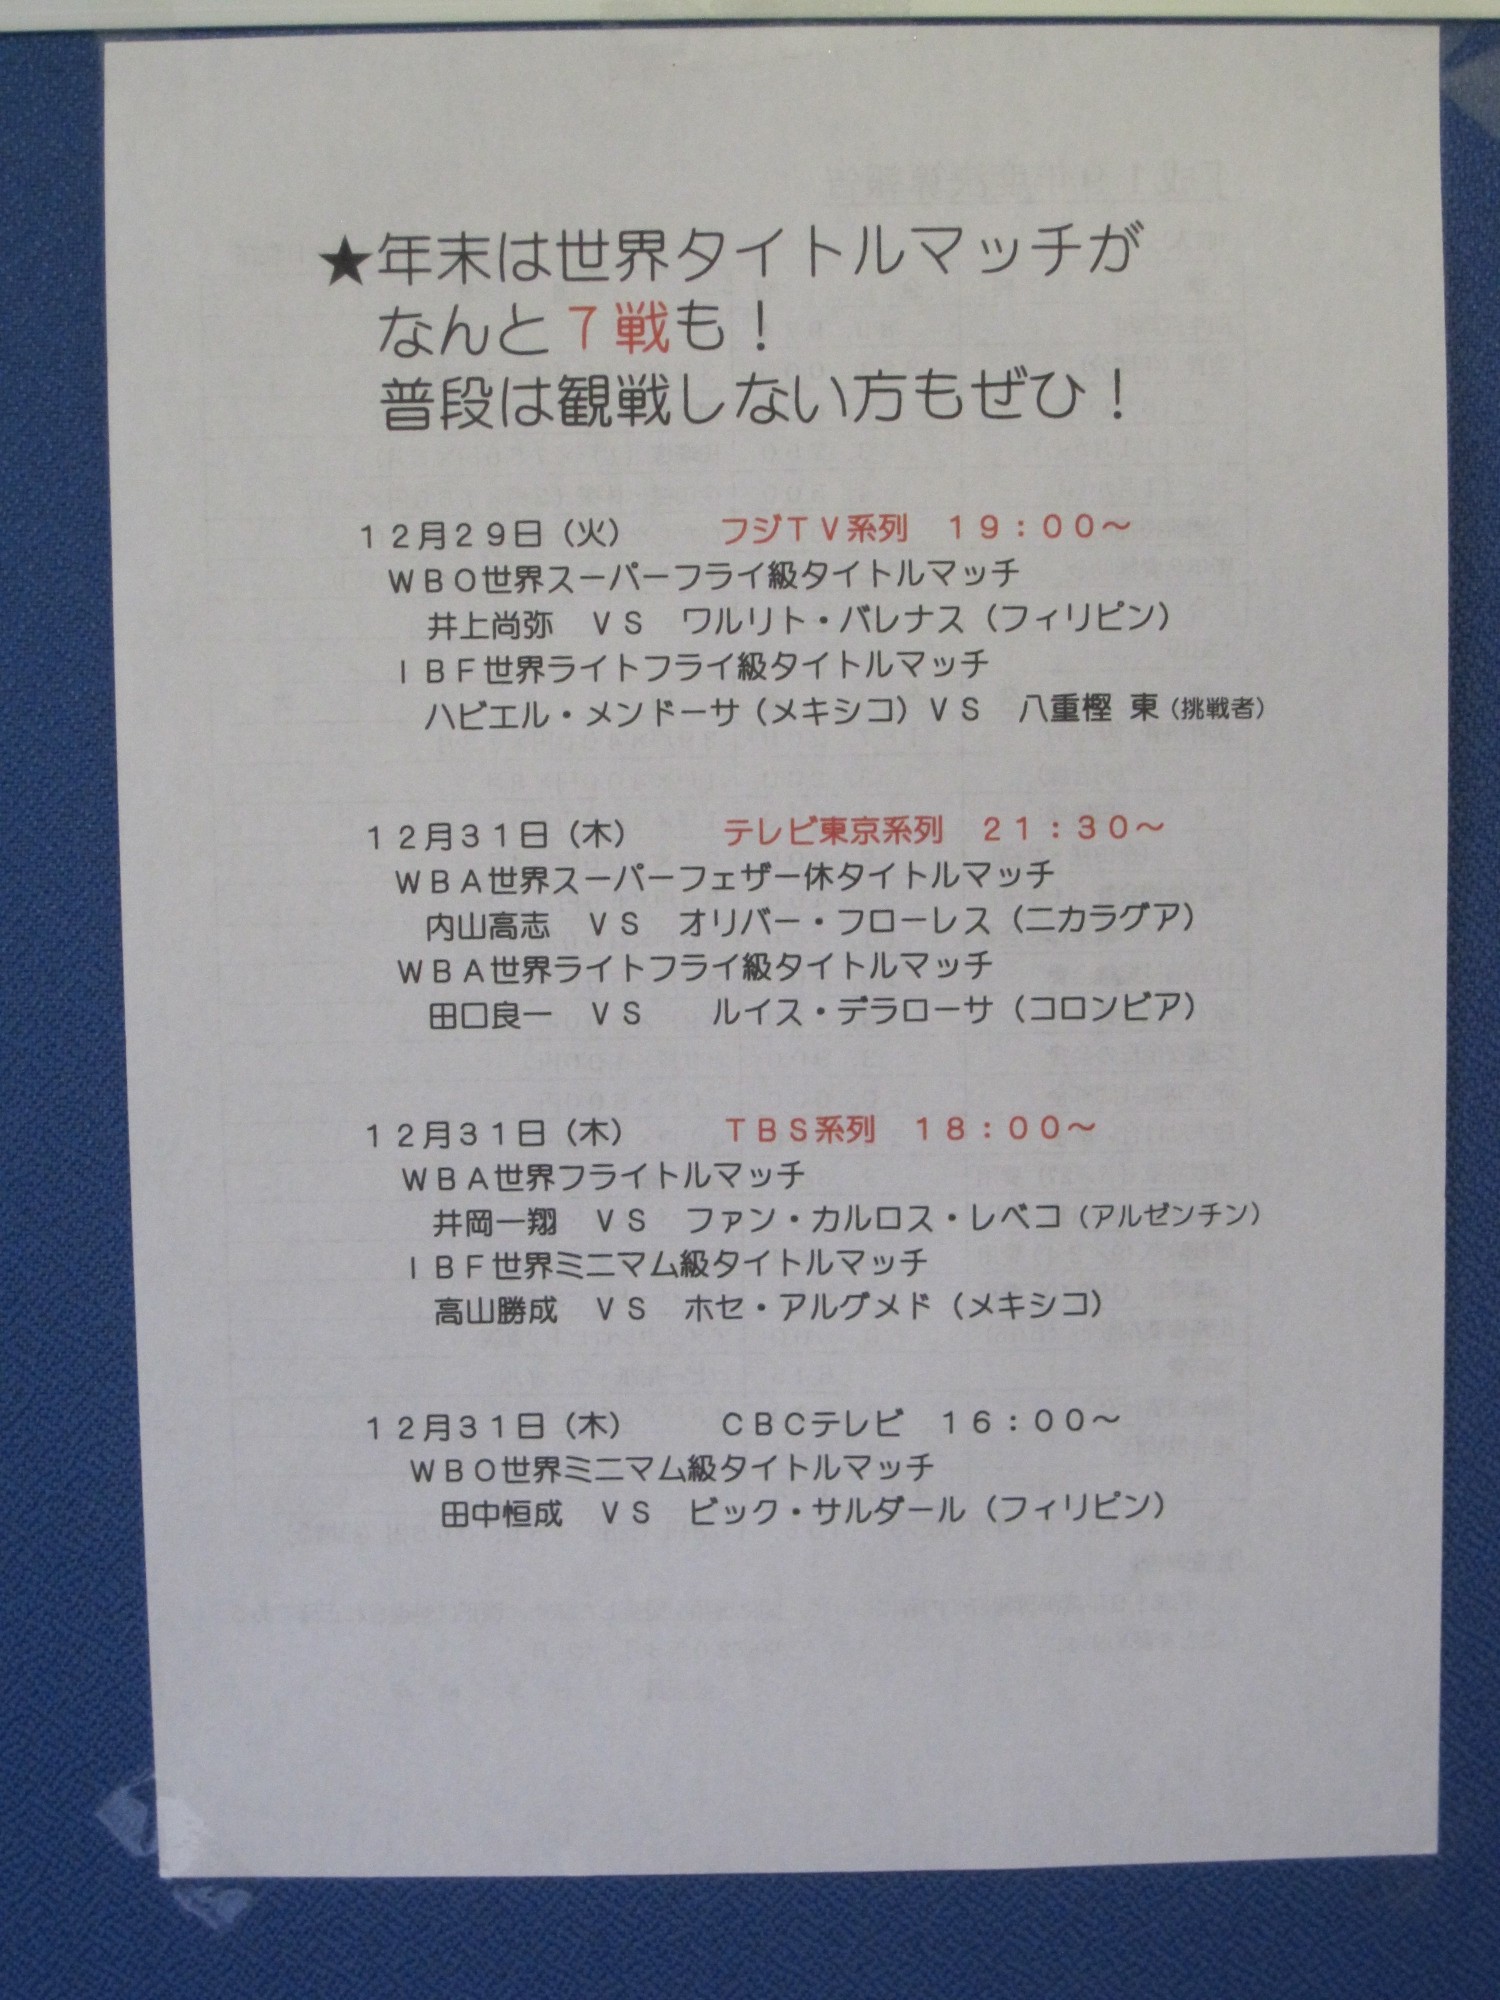 ★年末は世界タイトルマッチが
なんと７戦も！
普段は観戦しない方もぜひ！
１２月２９日（火）　フジＴＶ系列　１９：００～
ＷＢＯ世界スーパーフライ級タイトルマッチ
井上尚弥　ＶＳ　ワルリト・バレナス（フィリピン）
ＩＢＦ世界ライトフライ級タイトルマッチ
ハビエル・メンドーサ（メキシコ）ＶＳ　八重樫 東（挑戦者）
１２月３１日（木）　テレビ東京系列　２１：３０～
ＷＢＡ世界スーパーフェザー休タイトルマッチ
内山高志　ＶＳ　オリバー・フローレス（ニカラグア）
ＷＢＡ世界ライトフライ級タイトルマッチ
田口良一　ＶＳ　ルイス・デラローサ（コロンビア）
１２月３１日（木）　ＴＢＳ系列　１８：００～
ＷＢＡ世界フライトルマッチ
井岡一翔　ＶＳ　ファン・カルロス・レベコ（アルゼンチン）
ＩＢＦ世界ミニマム級タイトルマッチ
高山勝成　ＶＳ　ホセ・アルグメド（メキシコ）
１２月３１日（木）　ＣＢＣテレビ　１６：００～
ＷＢＯ世界ミニマム級タイトルマッチ
田中恒成　ＶＳ　ビック・サルダール（フィリピン）